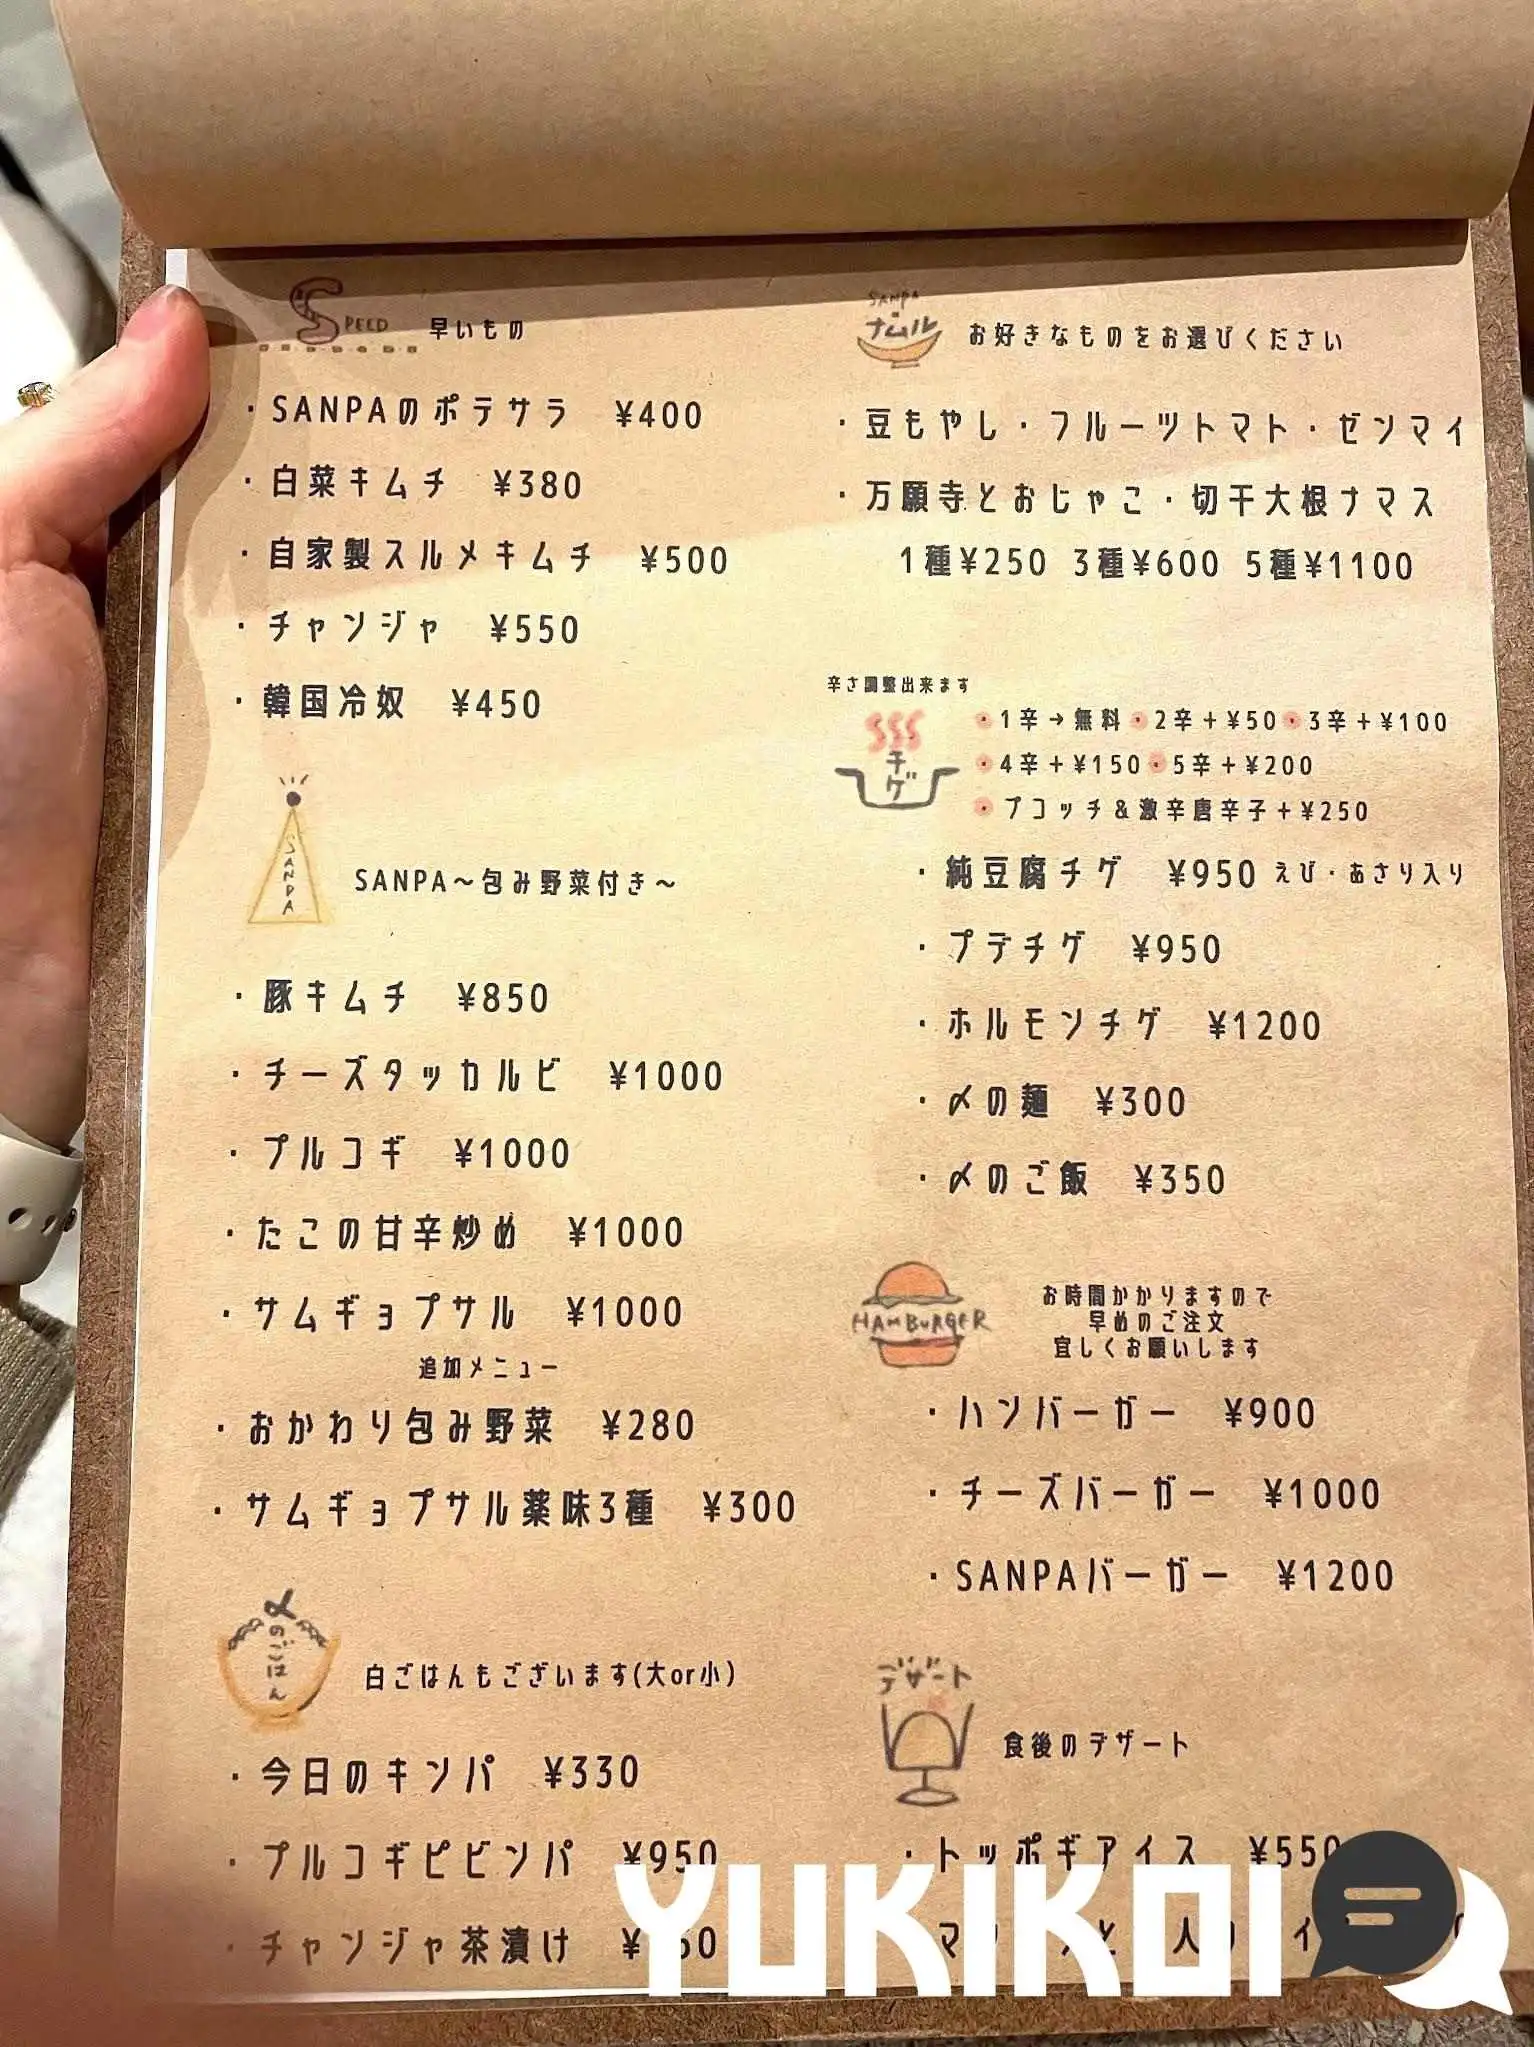 SPEED 早いもの
・SANPAのポテサラ ¥400
・白菜キムチ ¥380
・自家製スルメキムチ ¥500
・チャンジャ ¥550
・韓国冷奴 ¥450
SANPA
SANPA～包み野菜付き～
・豚キムチ ¥850
・チーズタッカルビ ¥1000
・プルコギ ¥1000
・たこの甘辛炒め ¥1000
・サムギョプサル ¥1000
追加メニュー
・おかわり包み野菜 ¥280
・サムギョプサル薬味3種 ¥300
〆のごはん
白ごはんもございます(大or小)
・今日のキンパ ¥330
・プルコギピビンパ ¥950
・チャンジャ茶漬け
SANPA
ナムル
お好きなものをお選びください
・豆もやし・フルーツトマト・ゼンマイ
・万願寺とおじゃこ・切干大根ナマス
1種¥250 3種¥600 5種¥1100
辛さ調整出来ます
チゲ
・1辛→無料・2辛+¥50・3辛+¥100
・4辛+¥150・5辛+¥200
・プコッチ&激辛唐辛子+¥250
・純豆腐チゲ ¥950 えび・あさり入り
・プデチゲ ¥950
・ホルモンチゲ ¥1200
・〆の麺 ¥300
・〆のご飯 ¥350
HAMBURGER
お時間かかりますので
早めのご注文
宜しくお願いします
・ハンバーガー ¥900
・チーズバーガー ¥1000
・SANPAバーガー ¥1200
デザート
食後のデザート
・トッポギアイス ¥550
YUKIKOI